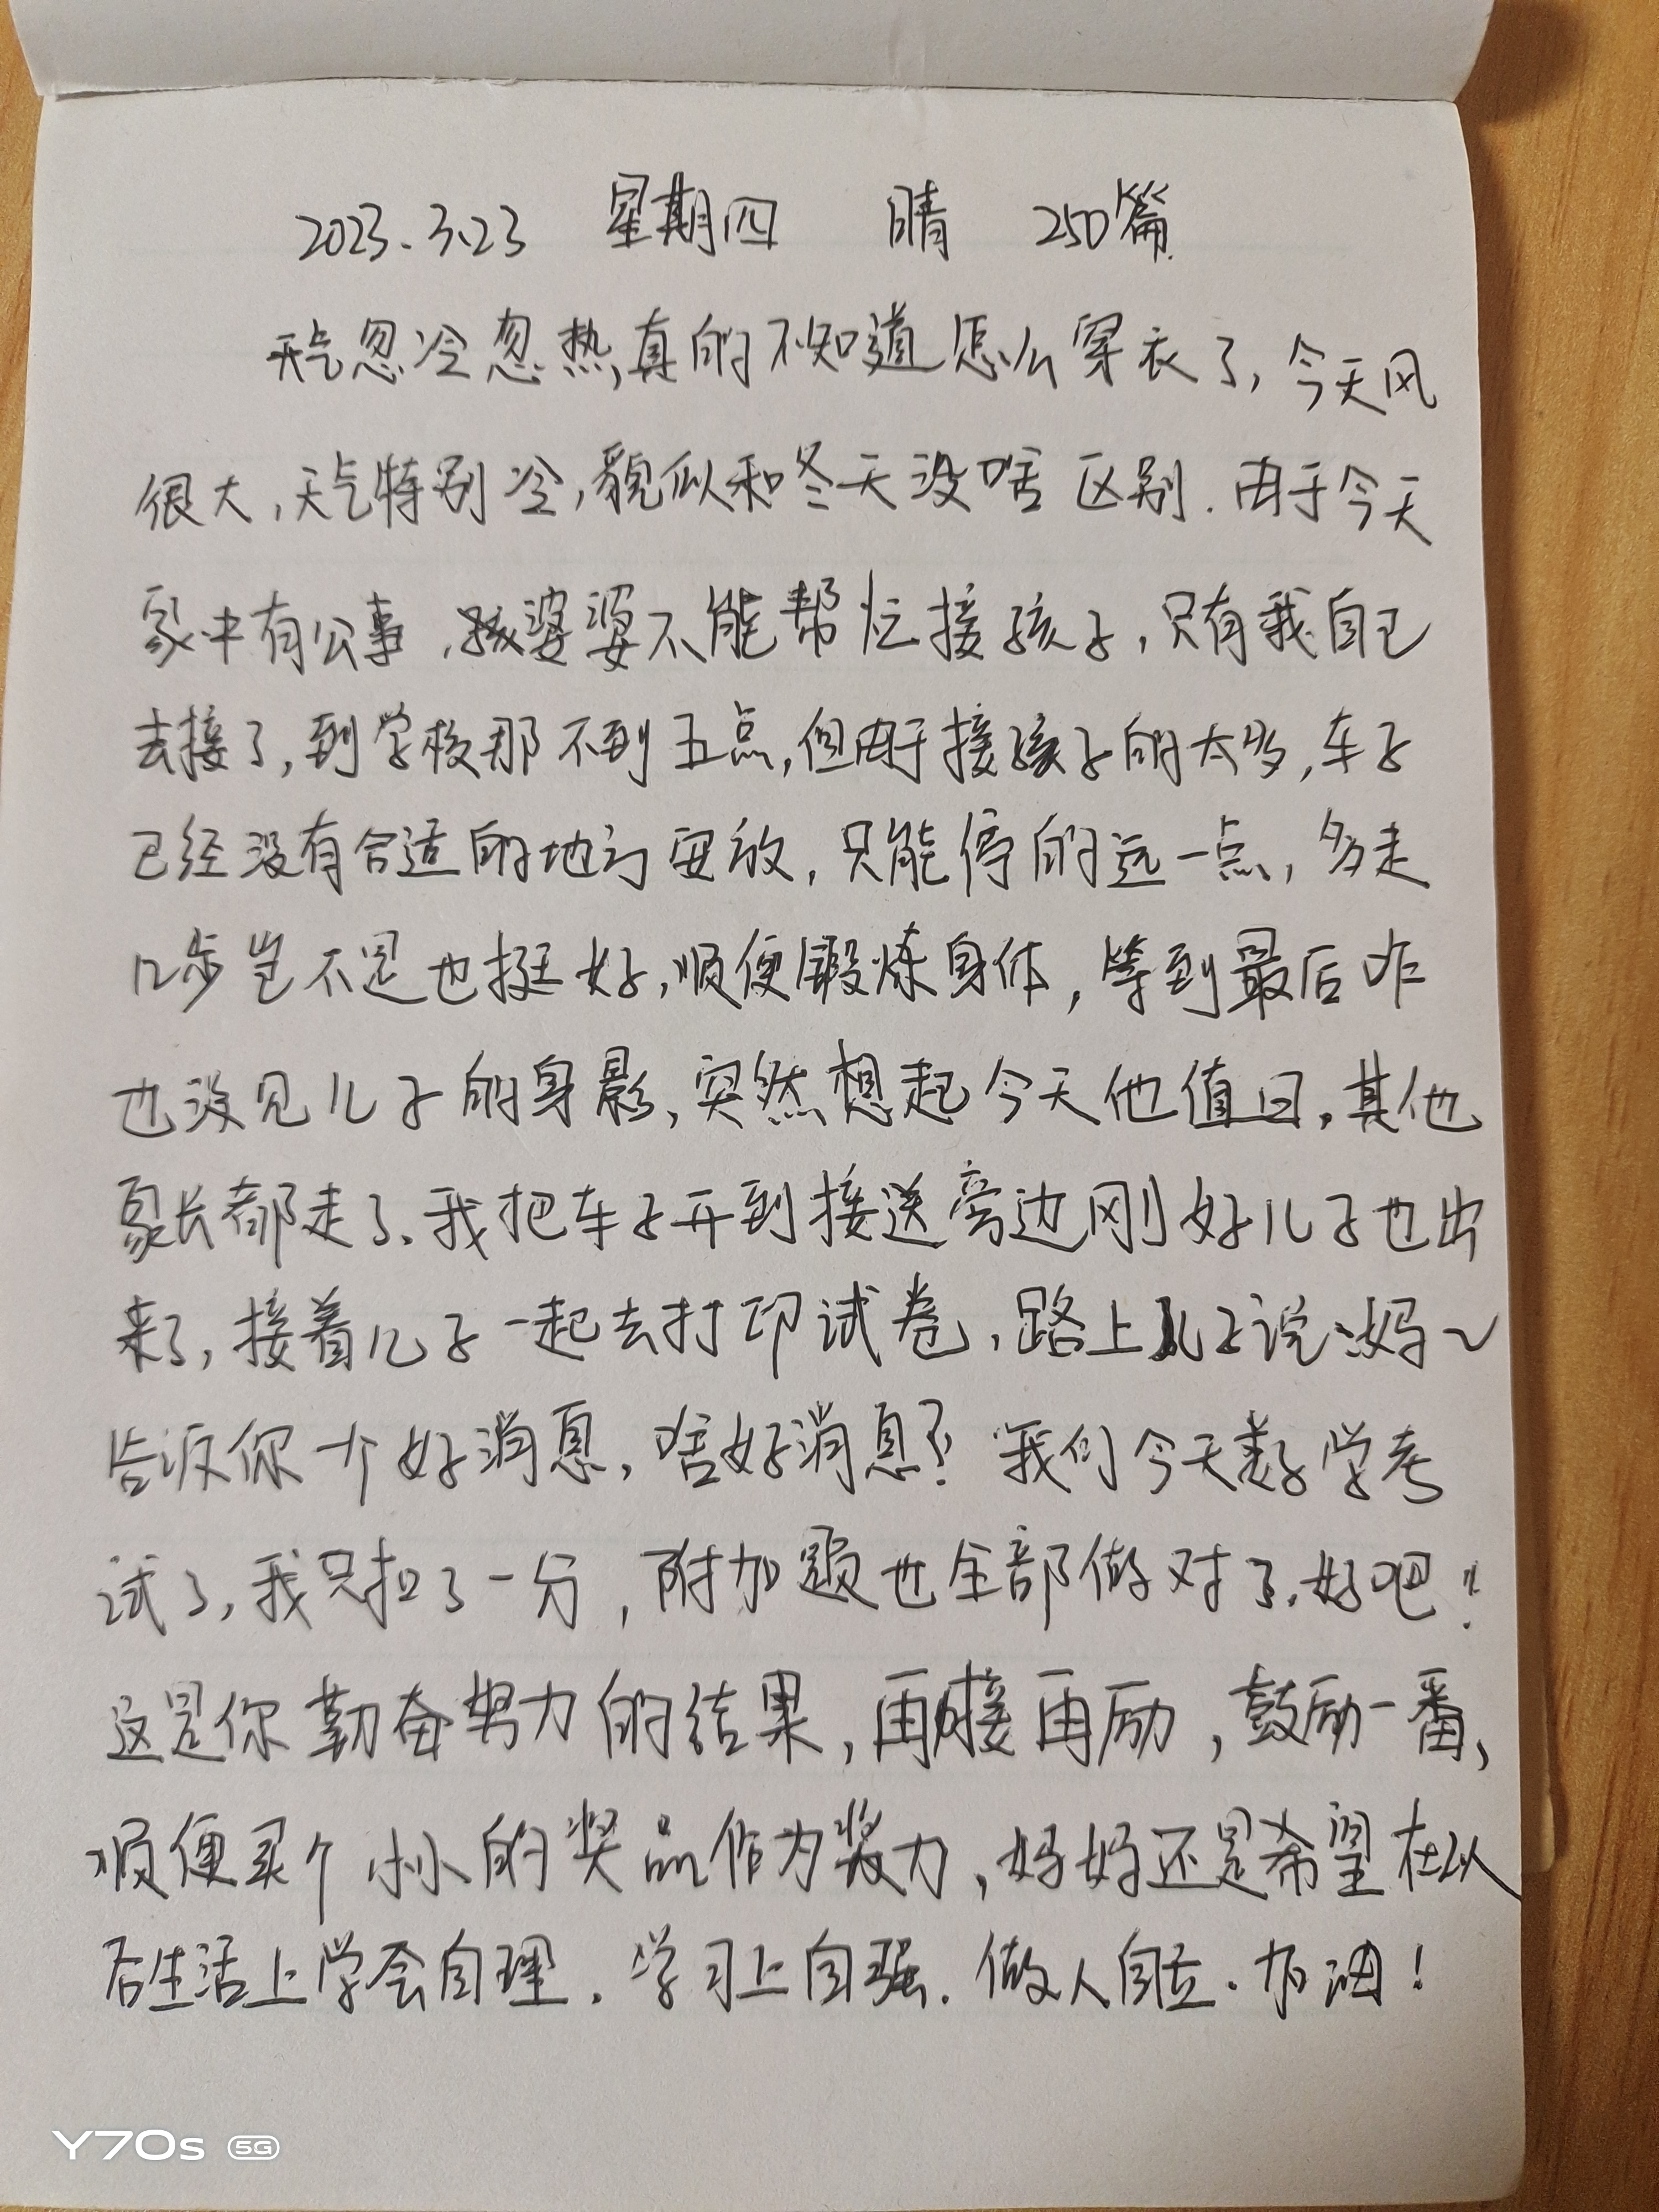 2023.3.23 星期四 晴 250篇
天气忽冷忽热,真的不知道怎么穿衣了,今天风
很大,天气特别冷,貌似和冬天没啥区别.由于今天
家中有公事,孩婆婆不能帮忙接孩子,只有我自己
去接了,到学校那不到五点,但由于接孩子的太多,车子
已经没有合适的地方安放,只能停的远一点,多走
几步岂不是也挺好,顺便锻炼身体,等到最后咋
也没见儿子的身影,突然想起今天他值日,其他
家长都走了.我把车子开到接送旁边刚好儿子也出
来了,接着儿子一起去打印试卷,路上儿子说:妈~
告诉你一个好消息,啥好消息?我们今天数学考
试了,我只扣了一分,附加题也全部做对了.好吧!
这是你勤奋努力的结果,再接再励,鼓励一番、
顺便买个小小的奖品作为奖力,妈妈还是希望在以
后生活上学会自理.学习上自强.做人自立.加油!
Y70s 5G